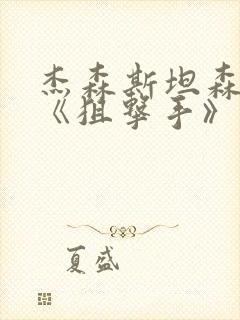 杰森斯坦森
《狙撃手》
夏盛